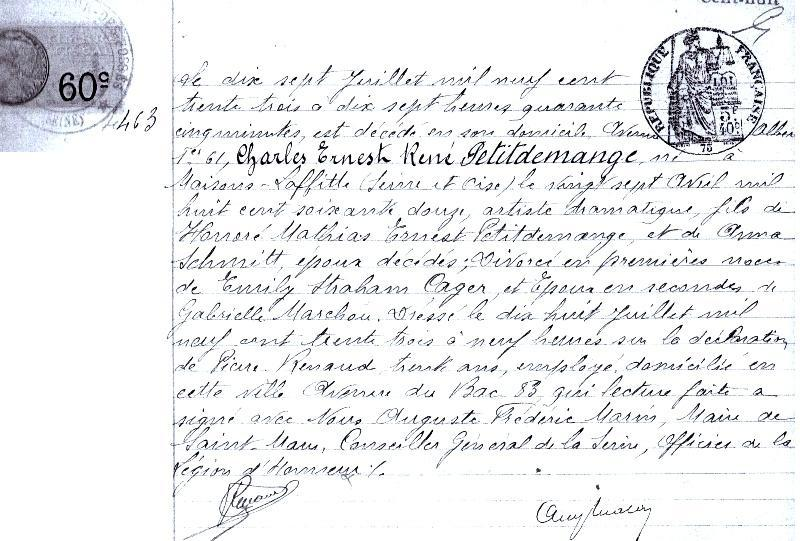 Cent-huit
60c
463
RÉPUBLIQUE FRANÇAISE
LOI
40c
75
Le dix sept Juillet mil neuf cent
trente trois à dix sept heures quarante
cinq minutes, est décédé en son domicile, Avenue Albert
1er 61, Charles Ernest René Petitdemange, né à
Maisons-Laffitte (Seine et Oise) le vingt sept Avril mil
huit cent soixante douze, artiste dramatique, fils de
Honoré Mathias Ernest Petitdemange, et de Anna
Schmitt, époux décédés; Divorcé en premières noces
de Emily Straham Cager, et Epoux en secondes de
Gabrielle Marchou. Dressé le dix huit Juillet mil
neuf cent trente trois à neuf heures sur la déclaration
de Pierre Renaud, trente ans, employé, domicilié en
cette ville Avenue du Bac 83, qui lecture faite a
signé avec Nous Auguste Frédéric Marin, Maire de
Saint-Maur, Conseiller Général de la Seine, Officier de la
Légion d'Honneur ./.
Renaud
Aug Marin